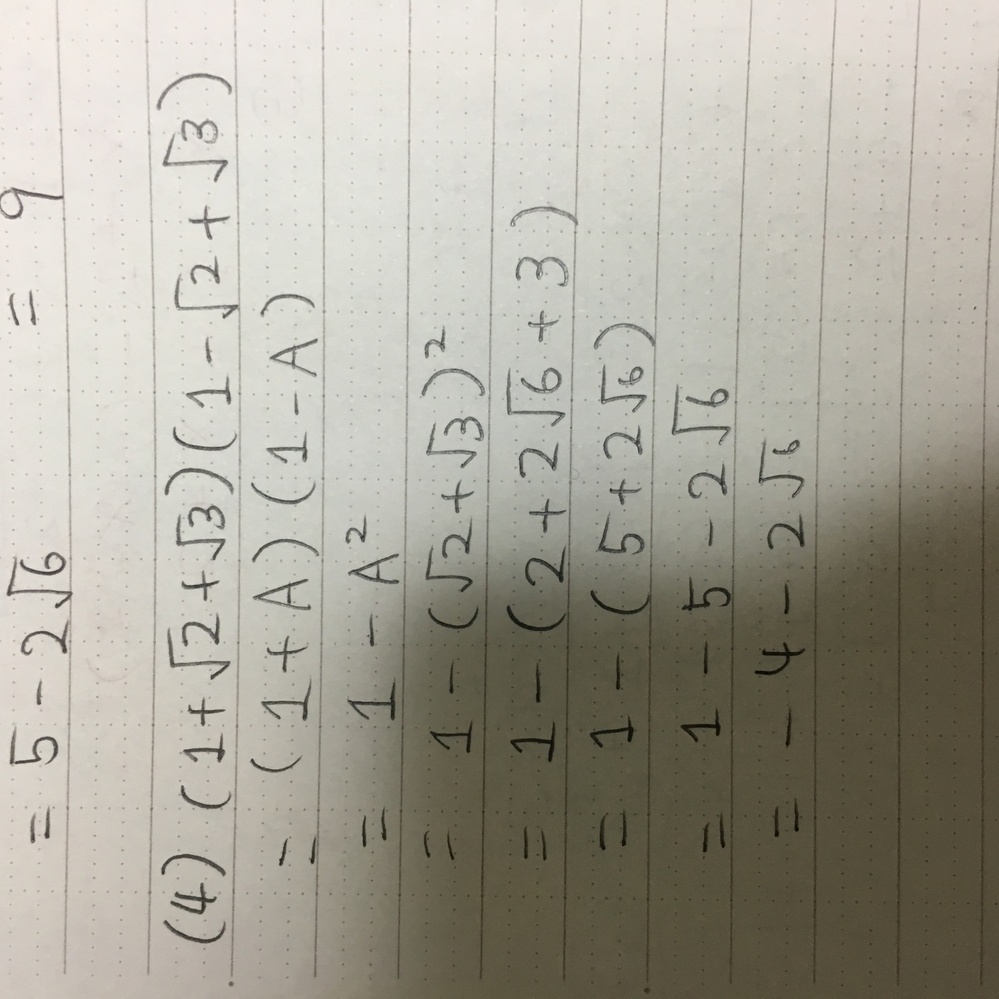 = 5 - 2√6 = 9
(4) (1+√2+√3)(1-√2+√3)
= (1+A)(1-A)
= 1 - A²
= 1 - (√2+√3)²
= 1 - (2+2√6+3)
= 1 - (5+2√6)
= 1 - 5 - 2√6
= - 4 - 2√6